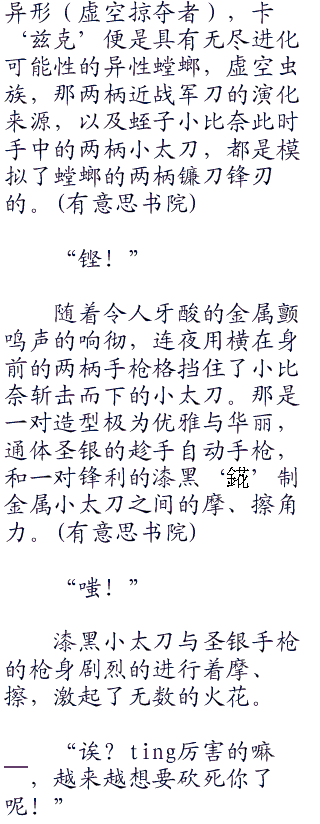 异形（虚空掠夺者），卡
‘兹克’便是具有无尽进化
可能性的异性螳螂，虚空虫
族，那两柄近战军刀的演化
来源，以及蛭子小比奈此时
手中的两柄小太刀，都是模
拟了螳螂的两柄镰刀锋刃
的。(有意思书院)
“铿！”
随着令人牙酸的金属颤
鸣声的响彻，连夜用横在身
前的两柄手枪格挡住了小比
奈斩击而下的小太刀。那是
一对造型极为优雅与华丽，
通体圣银的趁手自动手枪，
和一对锋利的漆黑‘錵’制
金属小太刀之间的摩、擦角
力。(有意思书院)
“嗤！”
漆黑小太刀与圣银手枪
的枪身剧烈的进行着摩、
擦，激起了无数的火花。
“诶？ting厉害的嘛
__，越来越想要砍死你了
呢！”